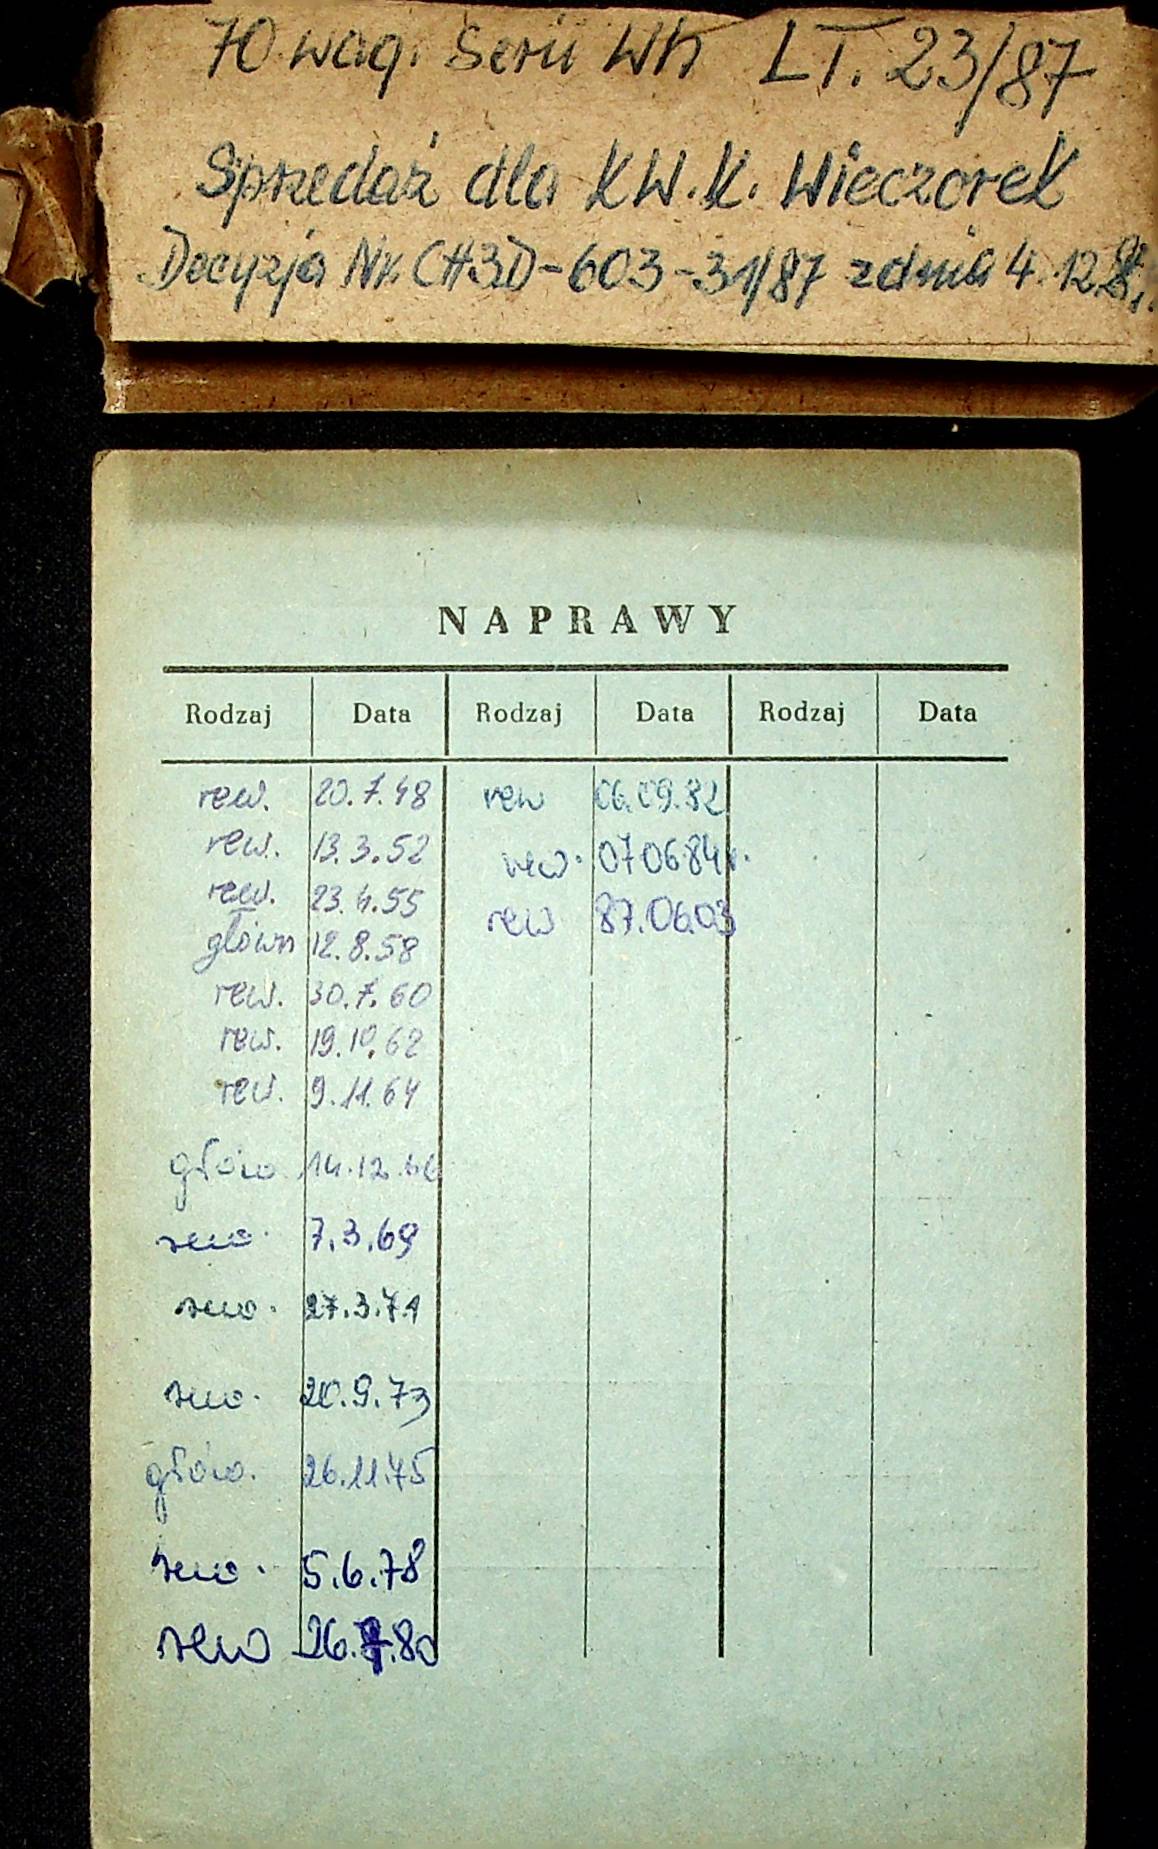 70 wag. Serii Wh LT. 23/87
Sprzedaż dla KW.K. Wieczorek
Decyzja Nr. CH3D-603-31/87 z dnia 4.12.
NAPRAWY
Rodzaj Data Rodzaj Data Rodzaj Data
rew. 20.7.48 rew 06.09.82
rew. 13.3.52 rew. 07.06.84r.
rew. 23.4.55 rew 87.06.03
główn 12.8.58
rew. 30.7.60
rew. 19.10.62
rew. 9.11.64
głów 14.12.66
rew. 7.3.69
rew. 27.3.71
rew. 20.9.73
głów. 26.11.75
rew. 5.6.78
rew 26.7.80